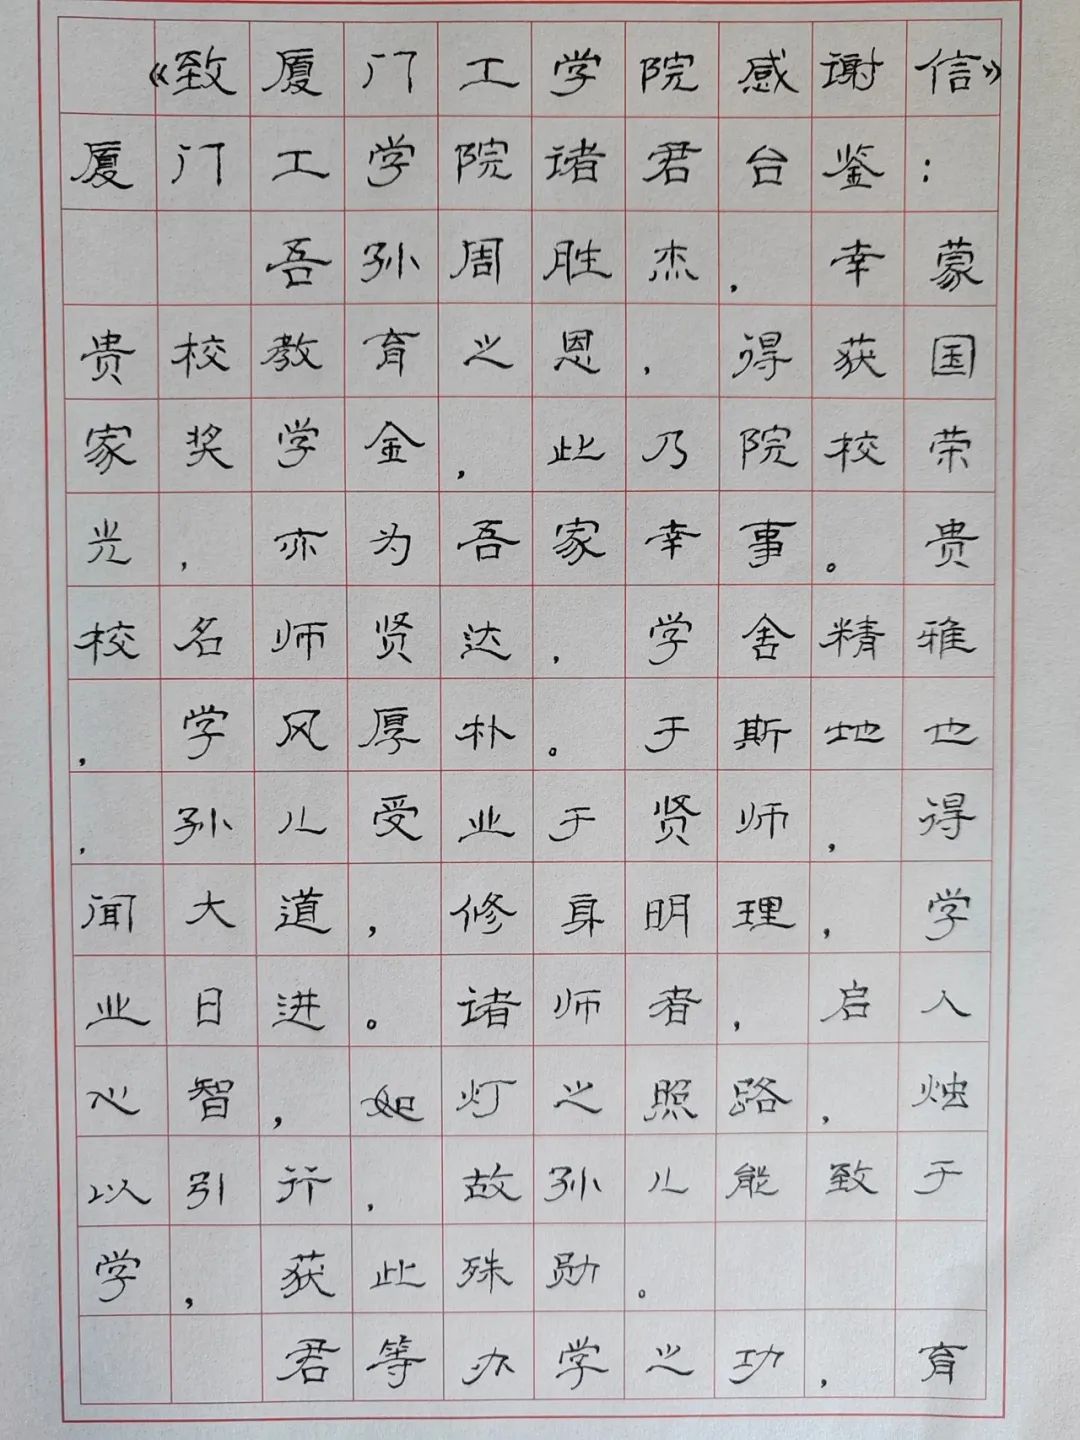 《致厦门工学院感谢信》
厦门工学院诸君台鉴：
吾孙周胜杰，幸蒙
贵校教育之恩，得获国
家奖学金，此乃院校荣
光，亦为吾家幸事。贵
校名师贤达，学舍精雅
，学风厚朴。于斯地也
，孙儿受业于贤师，得
闻大道，修身明理，学
业日进。诸师者，启人
心智，如灯之照路，烛
以引行，故孙儿能致于
学，获此殊勋。
君等办学之功，育